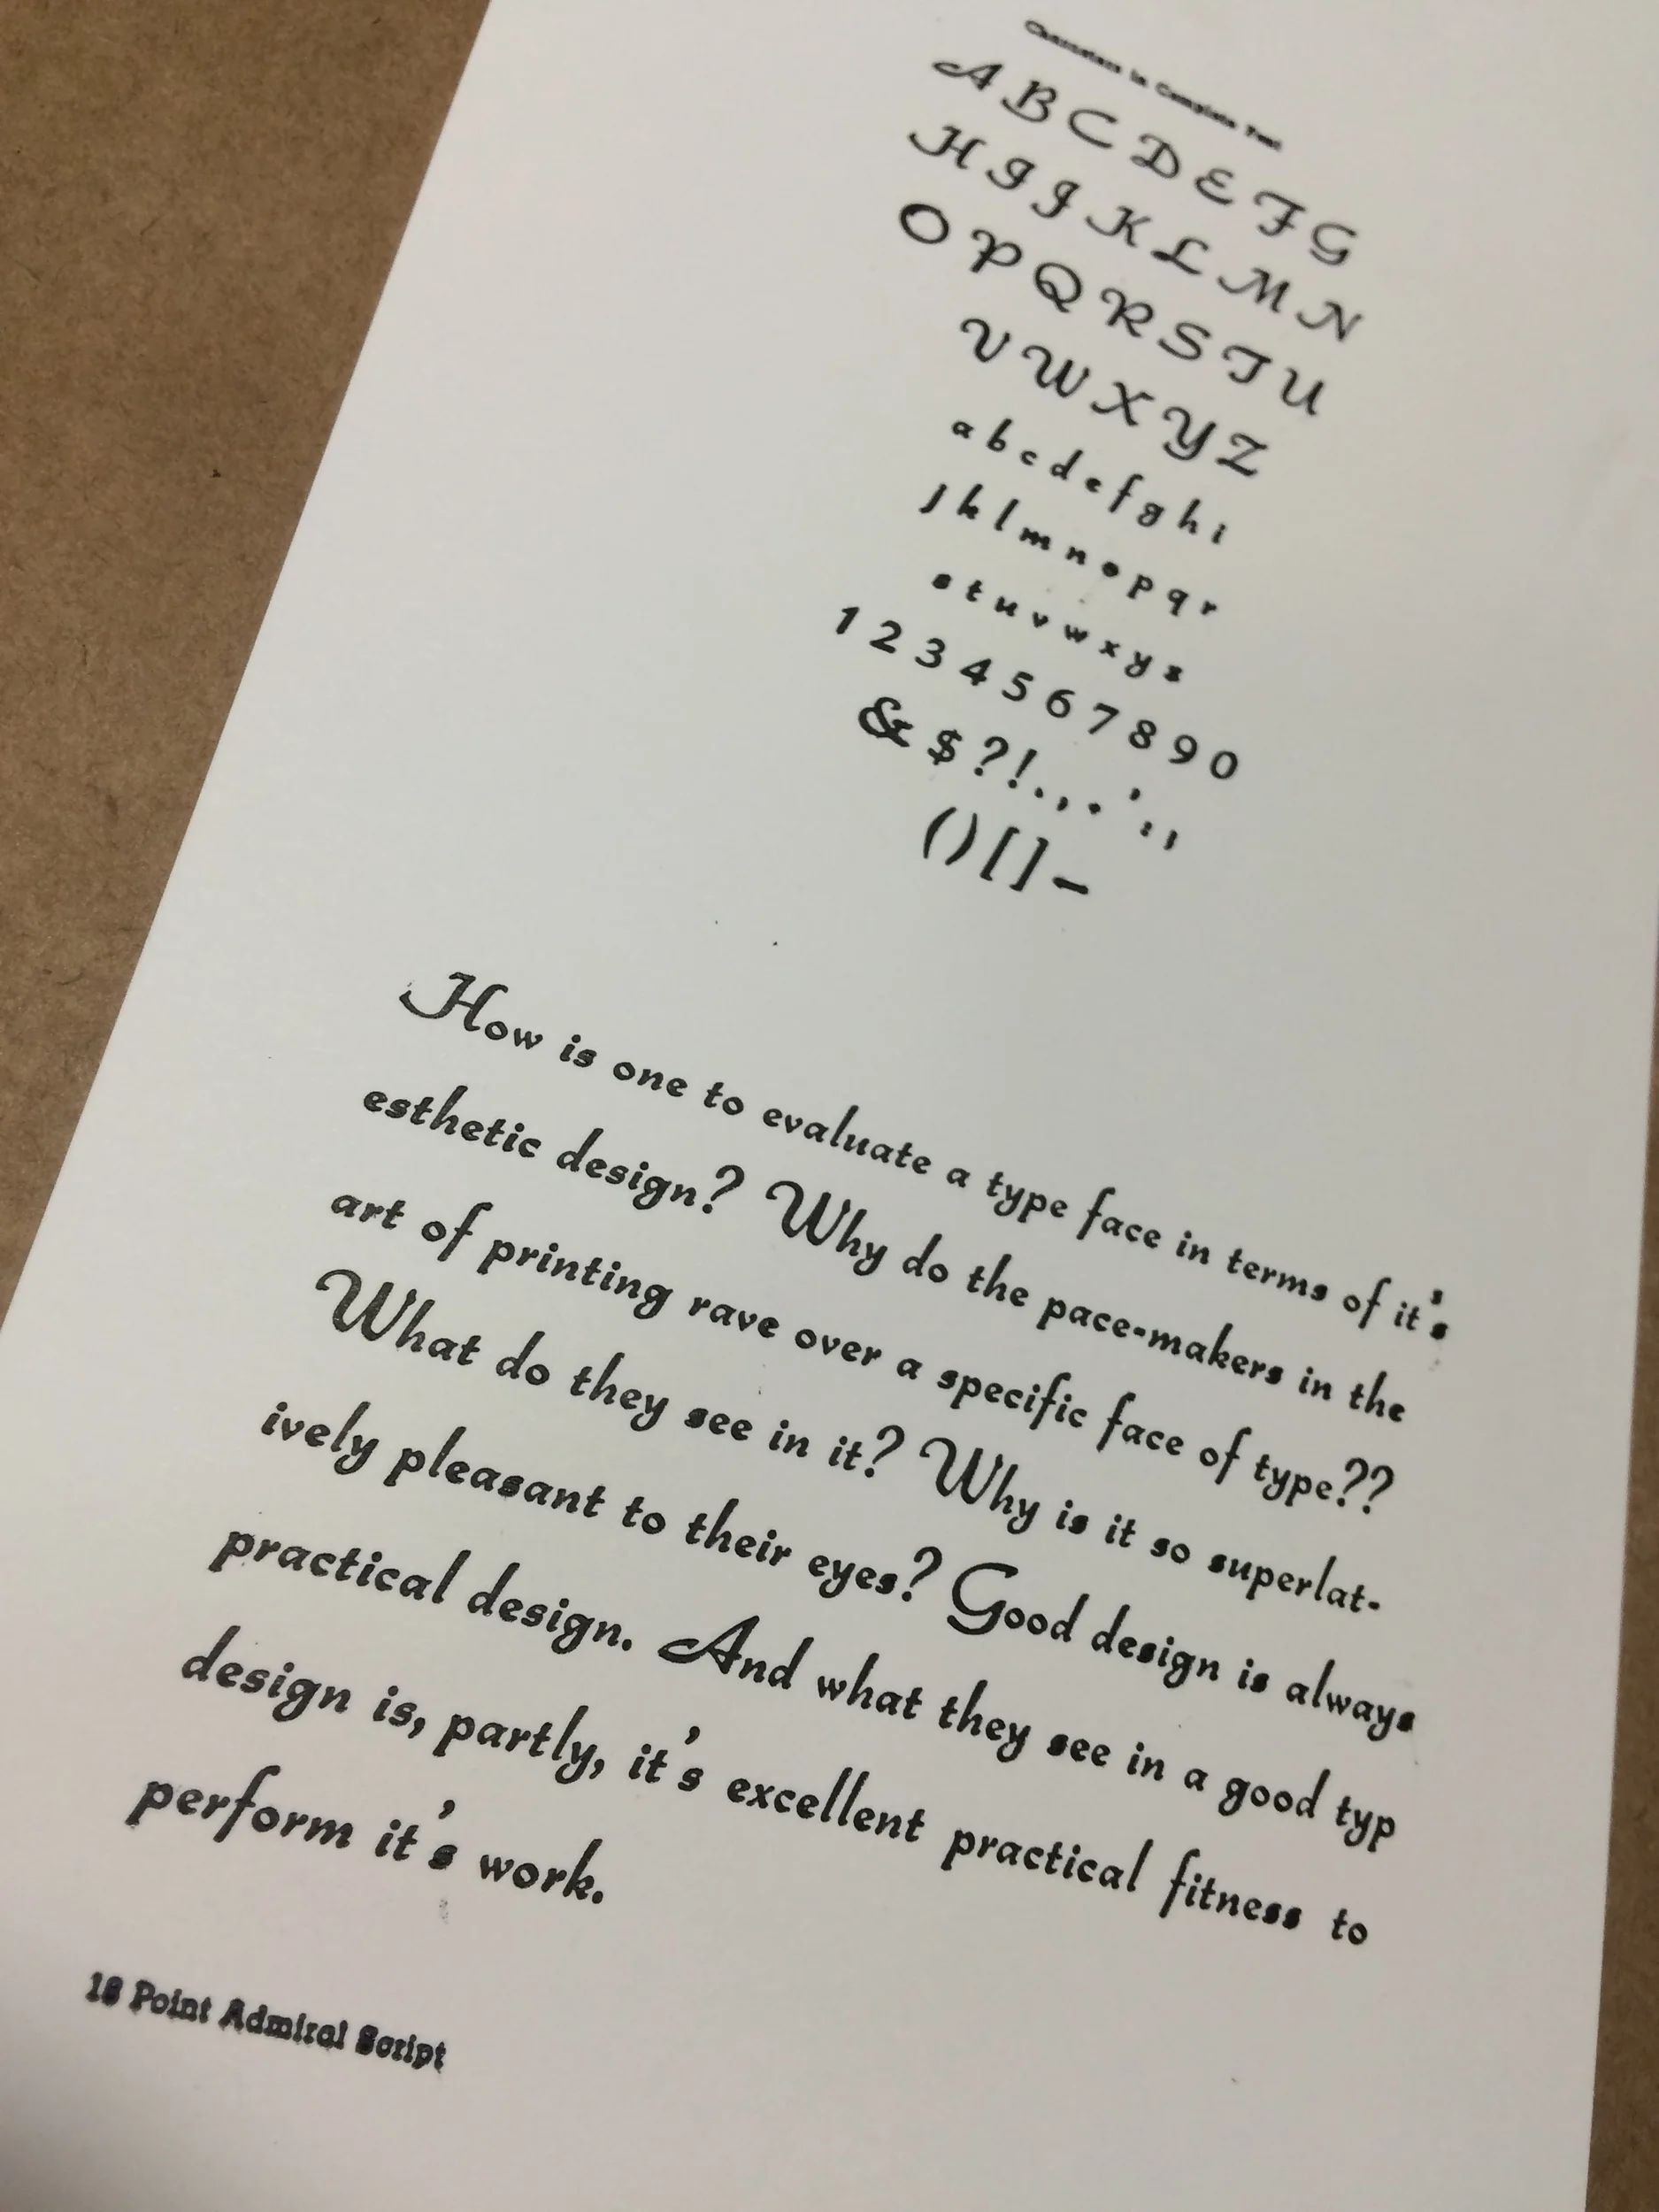 Characters in Complete Font
A B C D E F G
H I J K L M N
O P Q R S T U
V W X Y Z
a b c d e f g h i
j k l m n o p q r
s t u v w x y z
1 2 3 4 5 6 7 8 9 0
& $ ? ! . , - ' : ;
( ) [ ] –
How is one to evaluate a type face in terms of it's
esthetic design? Why do the pace-makers in the
art of printing rave over a specific face of type??
What do they see in it? Why is it so superlat-
ively pleasant to their eyes? Good design is always
practical design. And what they see in a good typ
design is, partly, it's excellent practical fitness to
perform it's work.
18 Point Admiral Script